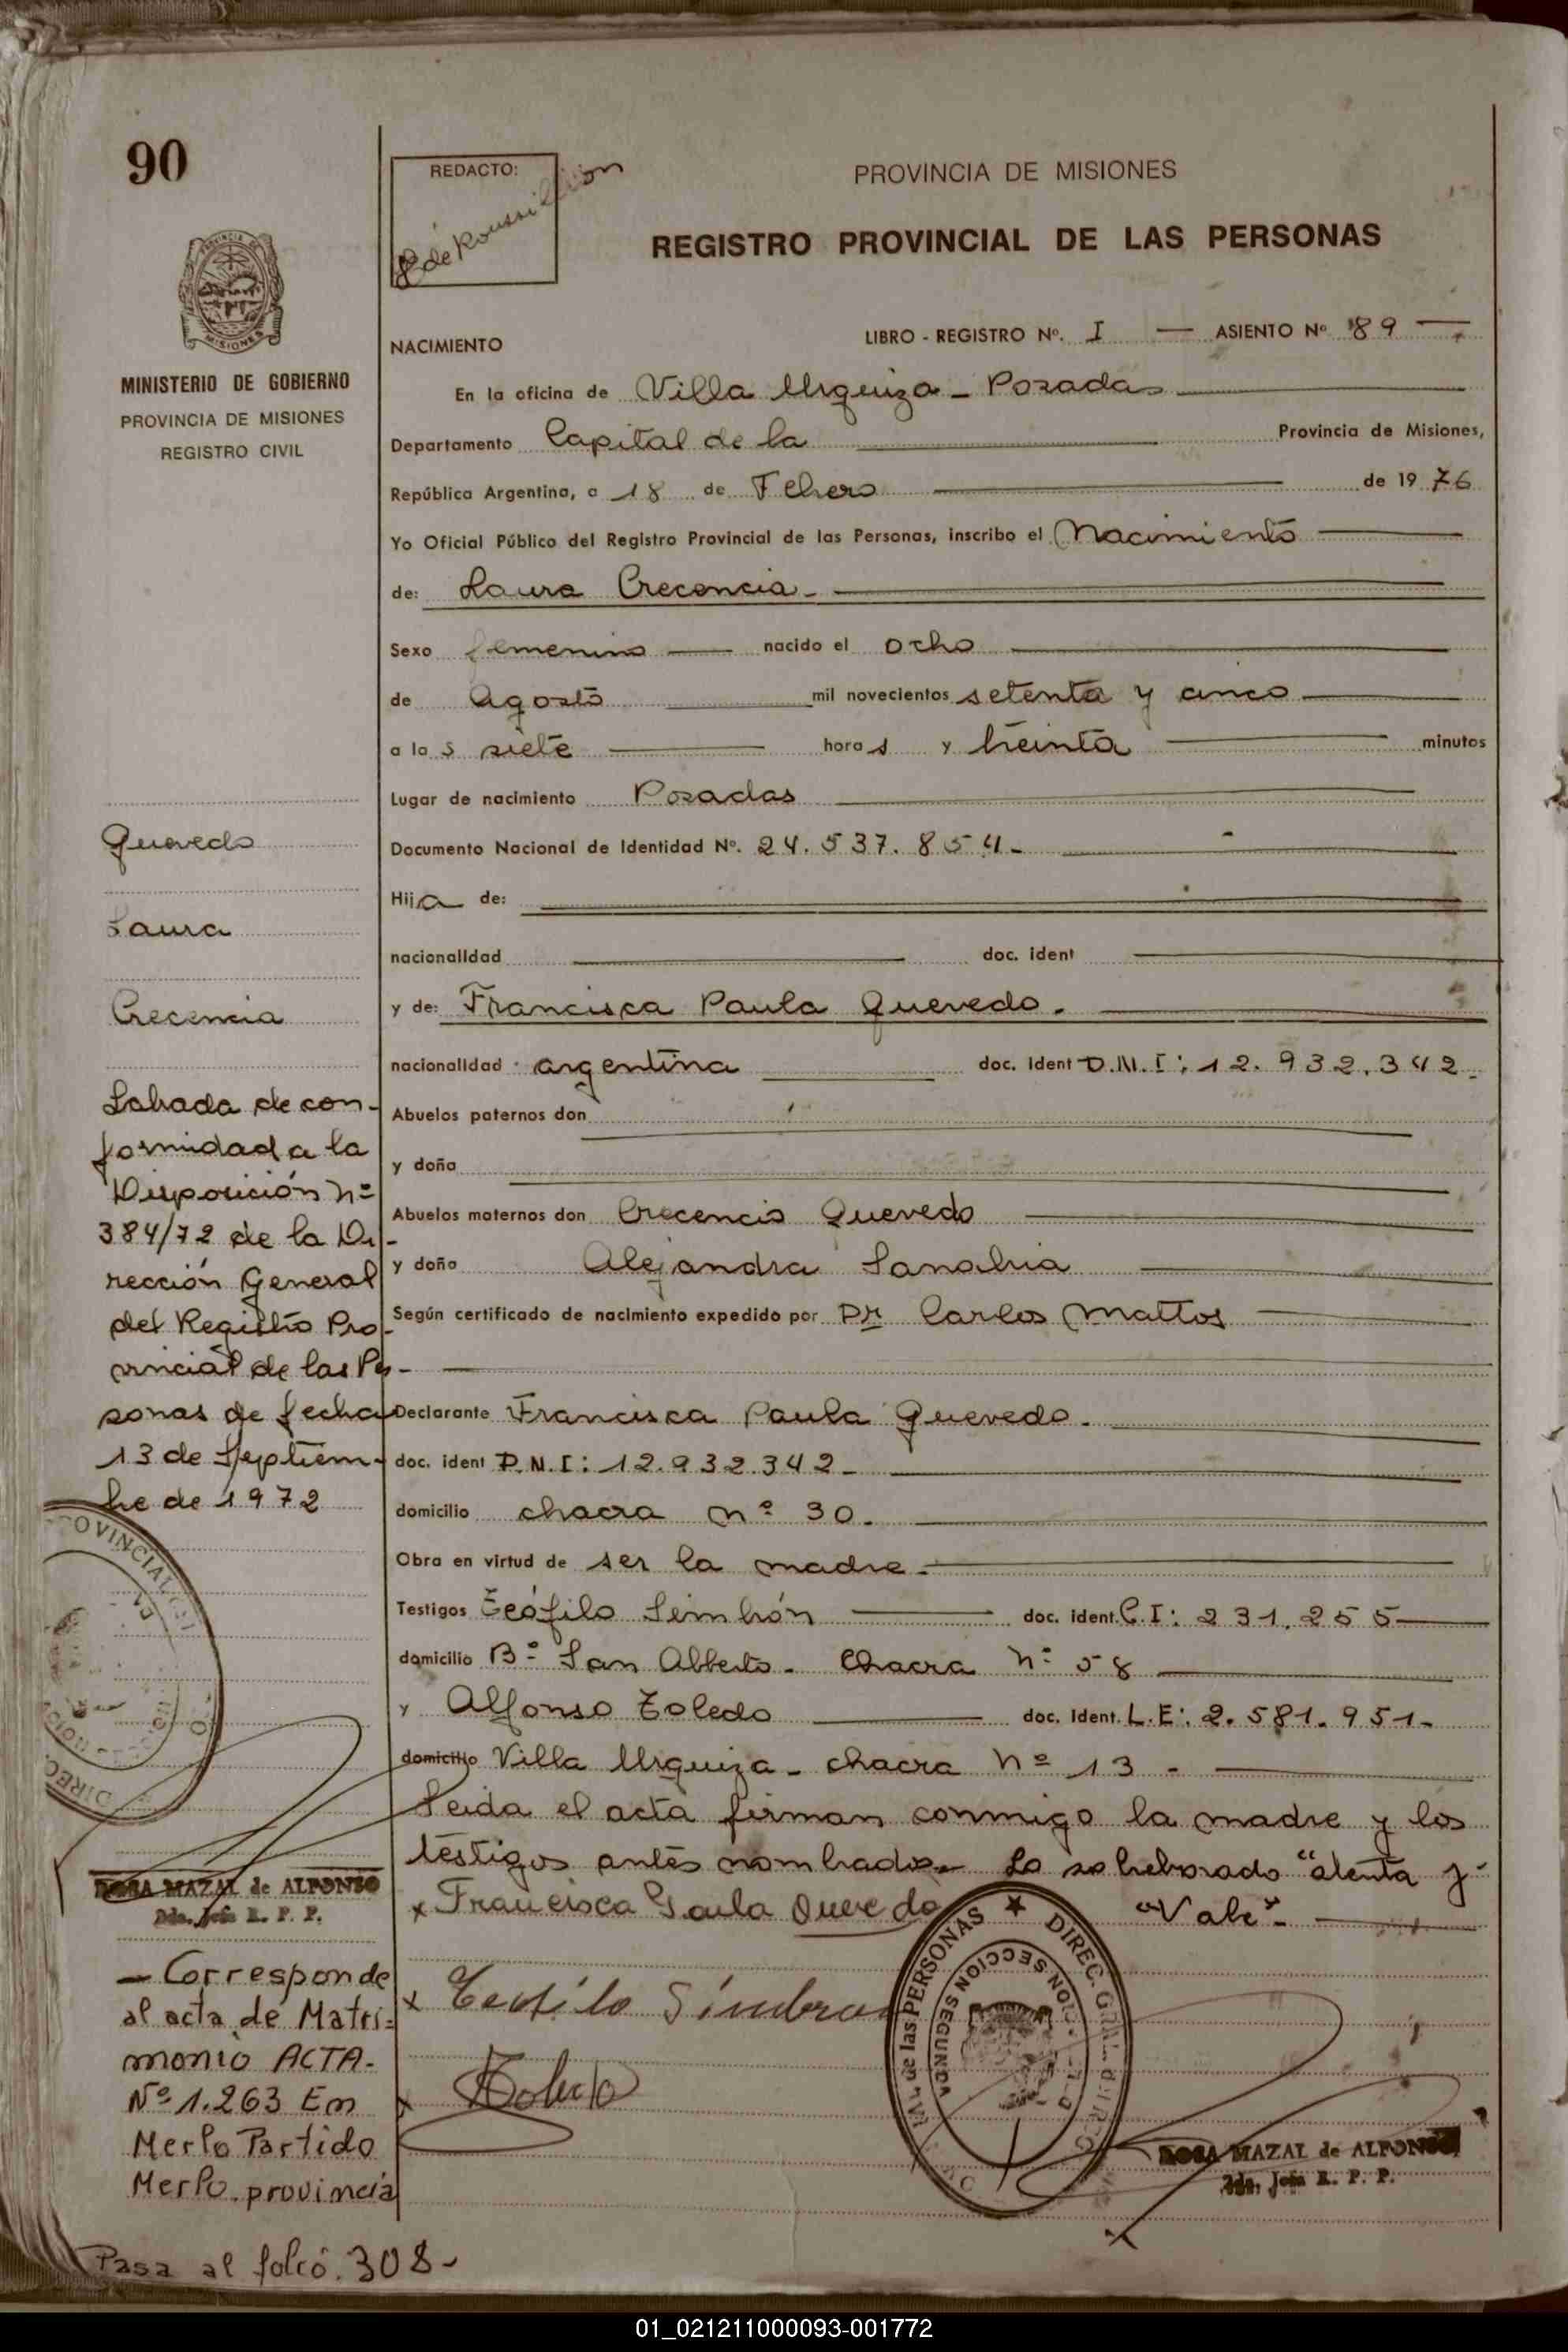 90
REDACTO:
PROVINCIA DE MISIONES
REGISTRO PROVINCIAL DE LAS PERSONAS
MISIONES
MINISTERIO DE GOBIERNO
PROVINCIA DE MISIONES
REGISTRO CIVIL
NACIMIENTO
LIBRO - REGISTRO Nº. I — ASIENTO Nº 89 —
En la oficina de Villa Urquiza - Posadas
Departamento Capital de la Provincia de Misiones,
República Argentina, a 18 de Febrero de 1976
Yo Oficial Público del Registro Provincial de las Personas, inscribo el Nacimiento
de: Laura Crecencia.
Sexo femenino nacido el ocho
de Agosto mil novecientos setenta y cinco
a las siete horas y treinta minutos
Lugar de nacimiento Posadas
Documento Nacional de Identidad Nº. 24.537.854.-
Hija de:
nacionalidad doc. ident
y de: Francisca Paula Quevedo.
nacionalidad argentina doc. ident D.N.I: 12.932.342.
Abuelos paternos don
y doña
Abuelos maternos don Crecencio Quevedo
y doña Alejandra Sanabria
Según certificado de nacimiento expedido por Dr Carlos Mattos
Declarante Francisca Paula Quevedo.
doc. ident D.N.I: 12.932.342-
domicilio chacra nº 30.
Obra en virtud de ser la madre.
Testigos Teófilo Simbrón doc. ident. C.I: 231.255
domicilio Bº San Alberto. Chacra nº 58
y Alfonso Toledo doc. ident. L.E: 2.581.951-
domicilio Villa Urquiza - chacra nº 13 -
Leida el acta firman conmigo la madre y los
testigos antes nombrados. Lo sobreborrado "atenta y"
"Vale".
x Francisca Paula Quevedo
x Teofilo Simbron
x Toledo
DIREC. GRAL. de las PERSONAS
SECCION SEGUNDA
ROSA MAZAL de ALFONSO
2da. Jefa R. P. P.
Quevedo
Laura
Crecencia
Labrada de con-
formidad a la
Disposición nº
384/72 de la Di-
rección General
del Registro Pro-
vincial de las Per-
sonas de fecha
13 de Septiem-
bre de 1972
PROVINCIAL
DIREC
ROSA MAZAL de ALFONSO
2da. Jefa R. P. P.
— Corresponde
al acta de Matri-
monio ACTA-
Nº 1.263 En
Merlo Partido
Merlo. provincia
Pasa al folio. 308-
01_021211000093-001772